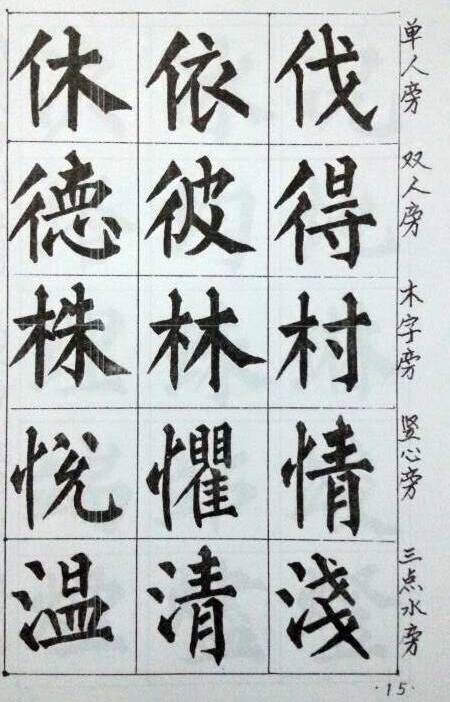 单人旁
伐 依 休
双人旁
得 彼 德
木字旁
村 林 株
竖心旁
情 懼 悦
三点水旁
淺 清 温
·15·